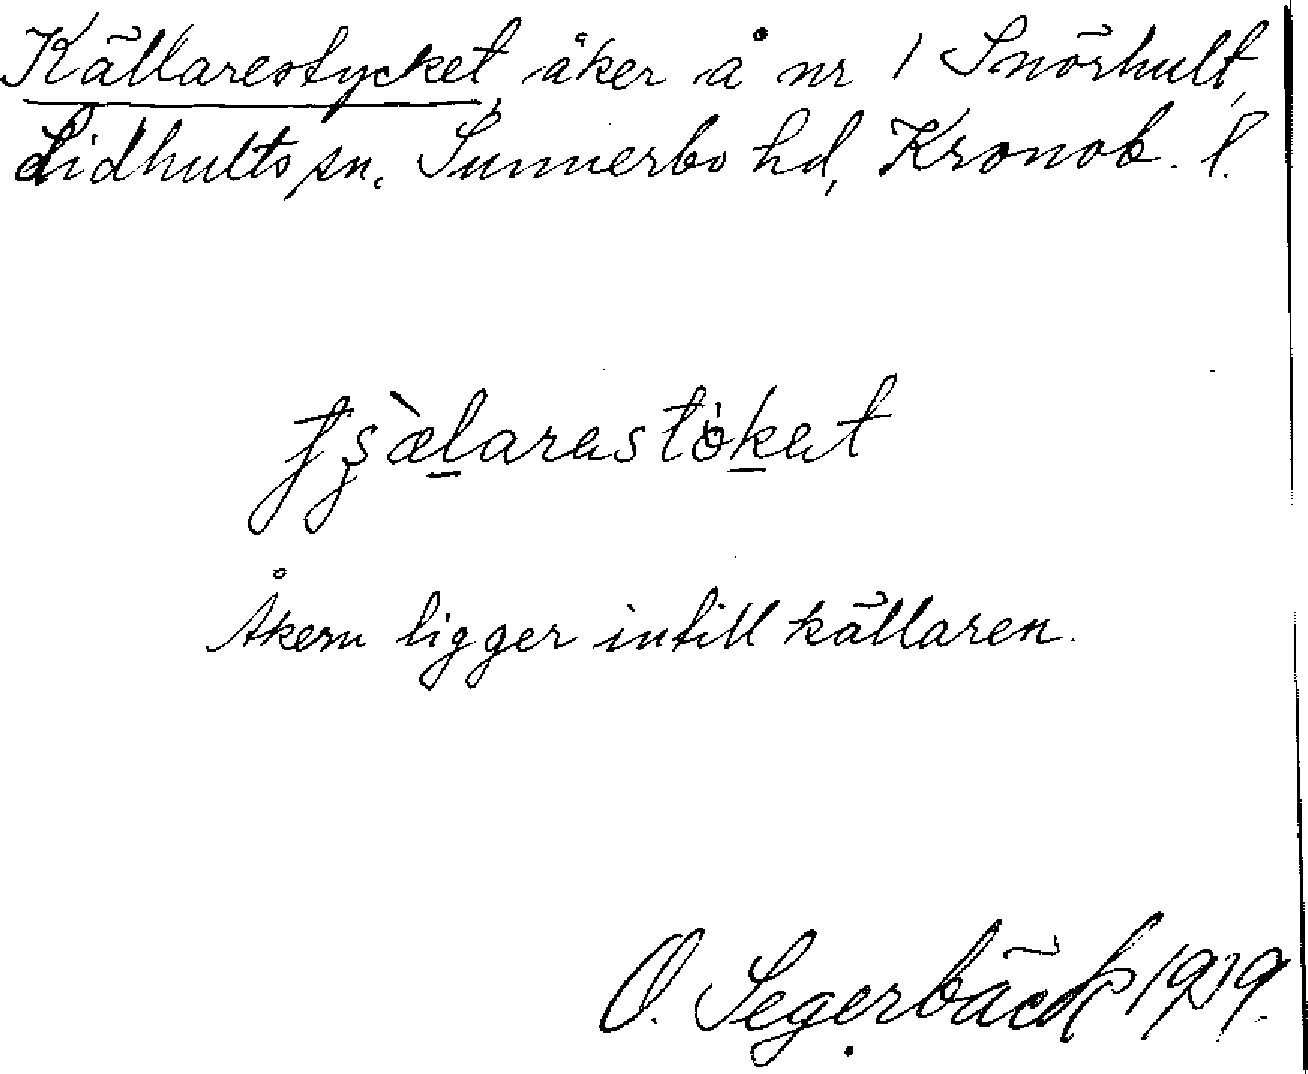 Källarestycket, åker å nr 1 Snörhult,
Lidhults sn, Sunnerbo hd, Kronob. l.
tʂæ̀l̲arastök̲at
Åkern ligger intill källaren.
O. Segerbäck 1919.